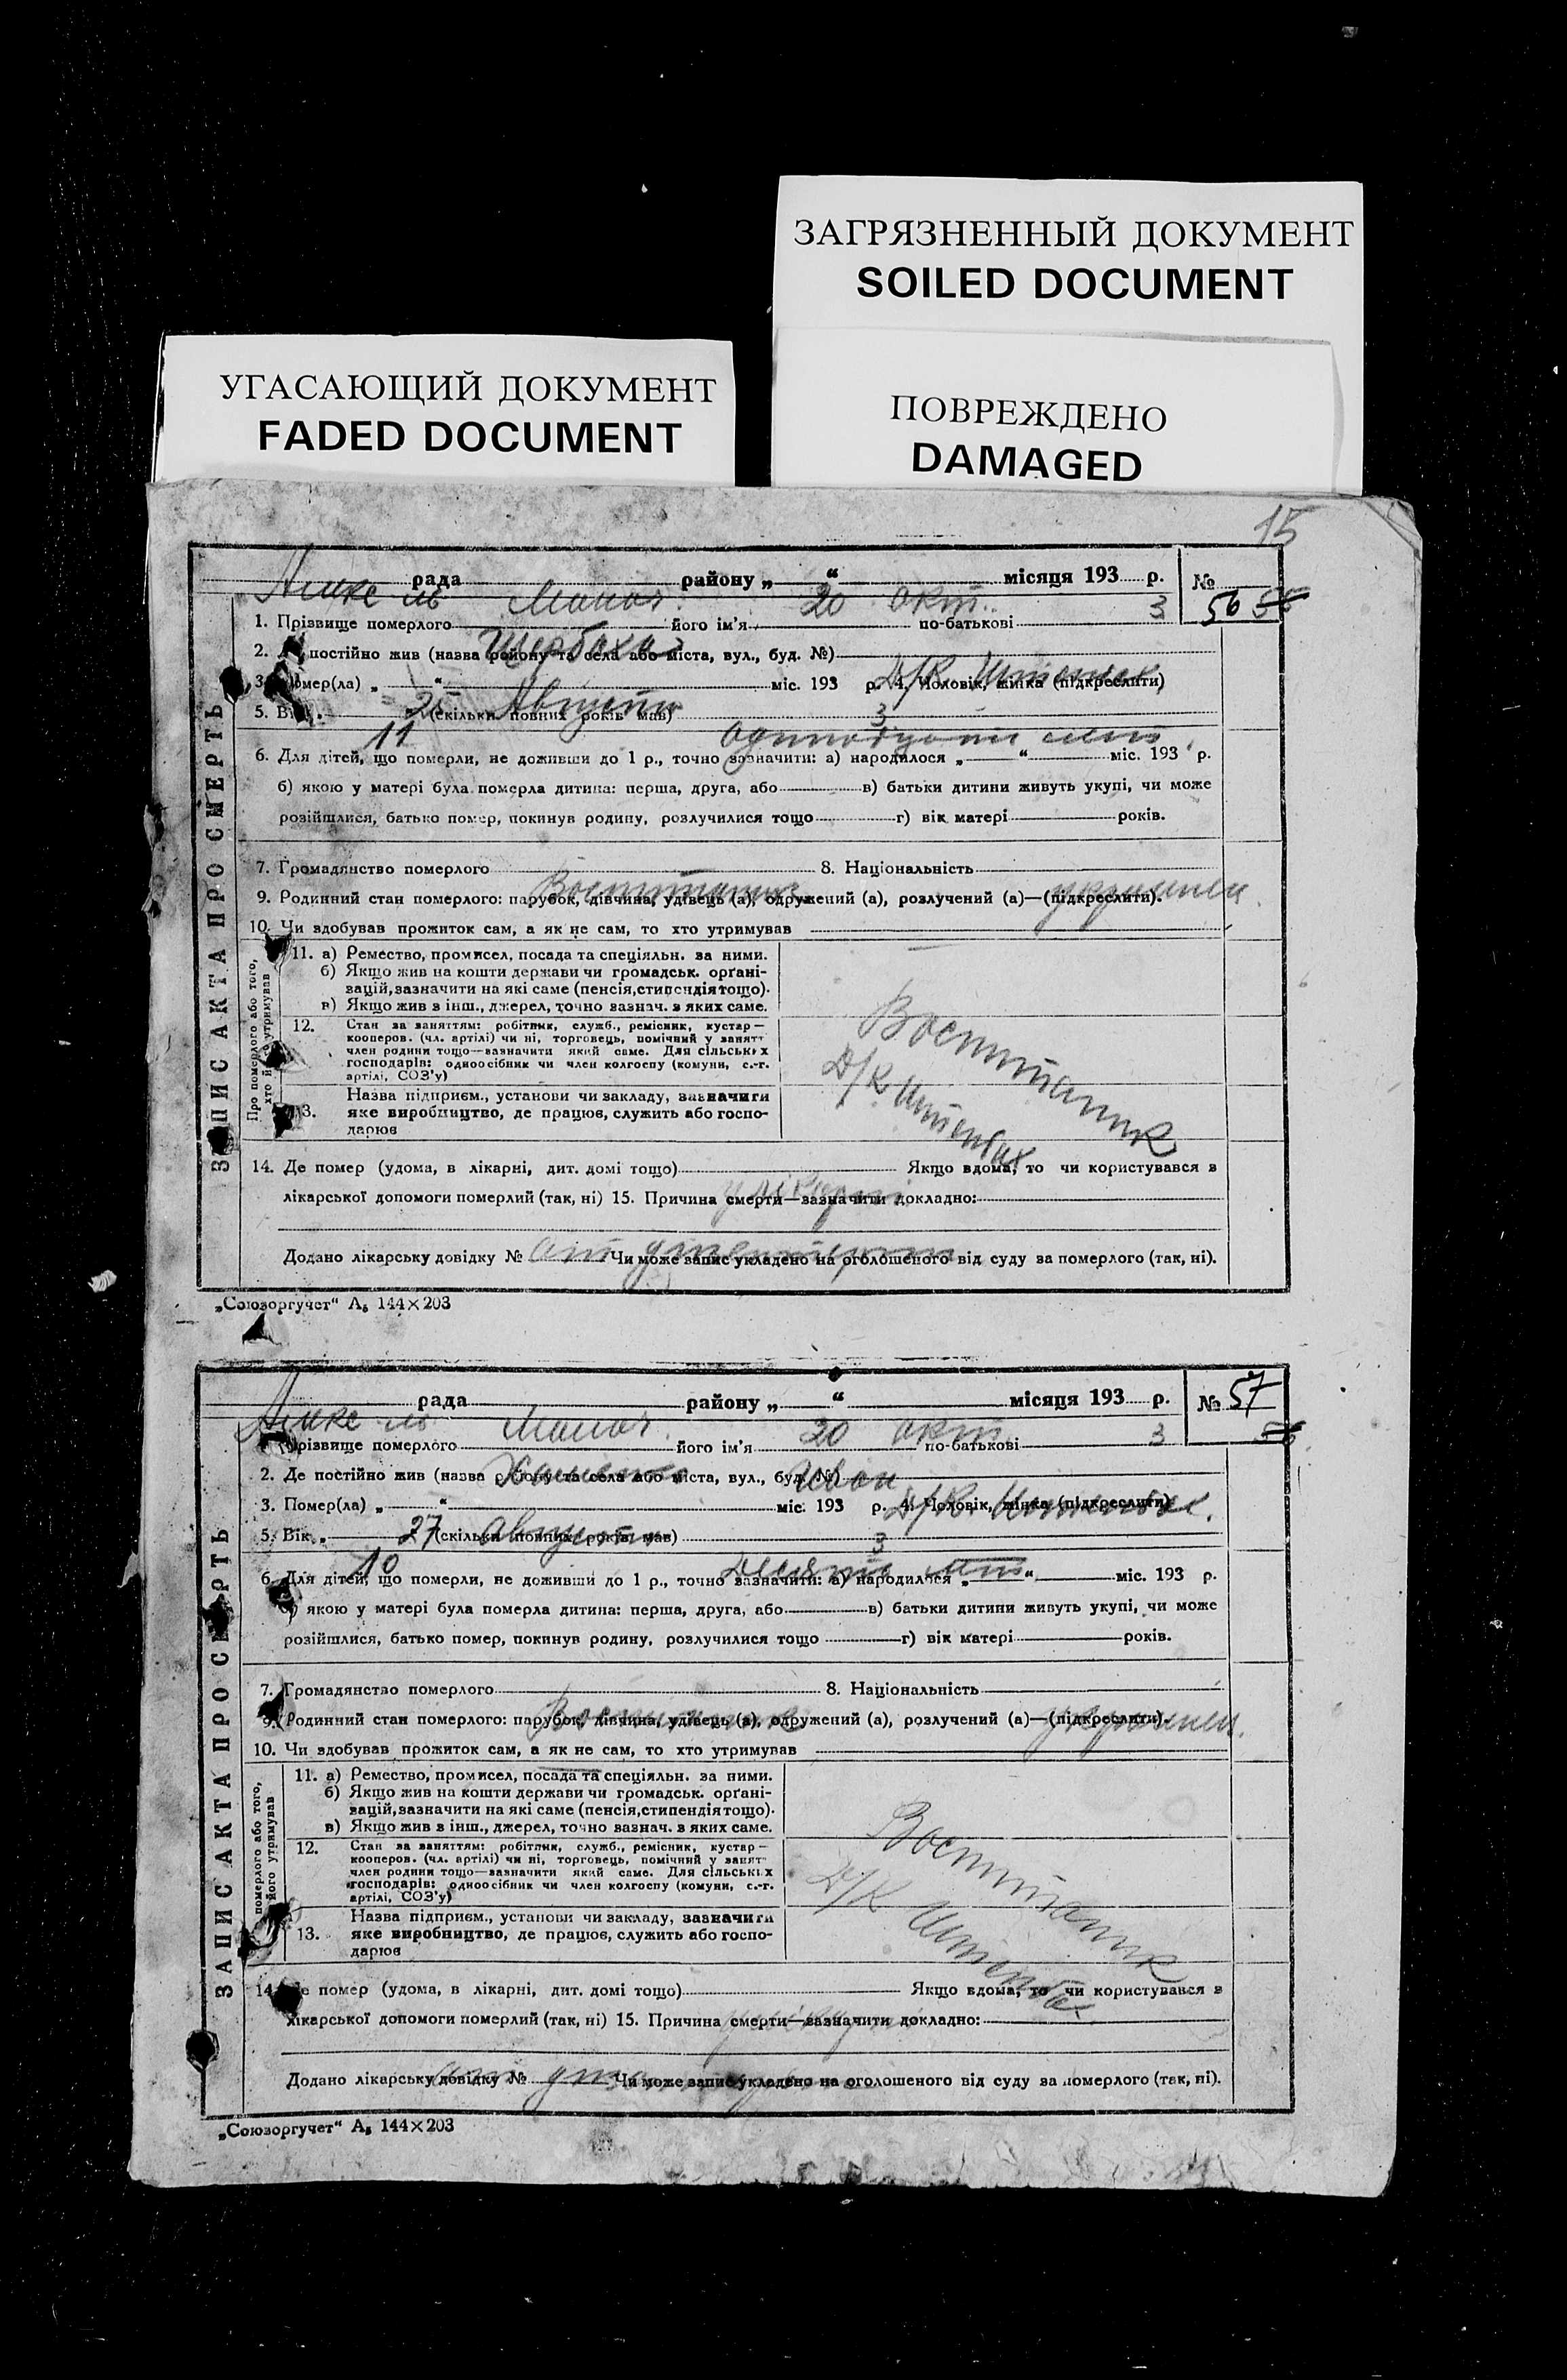 ЗАГРЯЗНЕННЫЙ ДОКУМЕНТ
SOILED DOCUMENT
УГАСАЮЩИЙ ДОКУМЕНТ
FADED DOCUMENT
ПОВРЕЖДЕНО
DAMAGED
15
рада району „ “ місяця 193 р. №
20 окт. 3 56 56
1. Прізвище померлого його ім'я по-батькові
2. постійно жив (назва району та села або міста, вул., буд. №)
Д/К
3. омер(ла) „ “ міс. 193 р. 4. Чоловік, жінка (підкреслити)
25 Августа 3
5. Ві (скільки повних років мав)
11
6. Для дітей, що померли, не доживши до 1 р., точно зазначити: а) народилося „ “ міс. 193 р.
б) якою у матері була померла дитина: перша, друга, або в) батьки дитини живуть укупі, чи може
розійшлися, батько помер, покинув родину, розлучилися тощо г) вік матері років.
7. Громадянство померлого 8. Національність
Воспитанник
9. Родинний стан померлого: парубок, дівчина, удівець (а), одружений (а), розлучений (а)—(підкреслити).
10. Чи здобував прожиток сам, а як не сам, то хто утримував
ЗАПИС АКТА ПРО СМЕРТЬ
Про померлого або того, хто й утримував
11. а) Ремество, промисел, посада та спеціяльн. за ними.
б) Якщо жив на кошти держави чи громадськ. орґані-
зацій, зазначити на які саме (пенсія, стипендія тощо).
в) Якщо жив з інш., джерел, точно зазнач. з яких саме.
12. Стан за заняттям: робітник, служб., ремісник, кустар—
кооперов. (чл. артілі) чи ні, торговець, помічний у занятт
член родини тощо—зазначити який саме. Для сільських
господарів: одноосібник чи член колгоспу (комуни, с.-г.
артілі, СОЗ'у)
Воспитанник
Д/К
3. Назва підприєм., установи чи закладу, зазначити
яке виробництво, де працює, служить або госпо-
дарює
14. Де помер (удома, в лікарні, дит. домі тощо) Якщо вдома, то чи користувався в
лікарської допомоги померлий (так, ні) 15. Причина смерти—зазначити докладно:
Додано лікарську довідку № Чи може запис укладено на оголошеного від суду за померлого (так, ні).
„Союзоргучет“ А₅ 144×203
рада району „ “ місяця 193 р. № 57
20 окт 3 56
Прізвище померлого його ім'я по-батькові
Иван
2. Де постійно жив (назва району та села або міста, вул., буд. №)
Д/К
3. Помер(ла) „ “ міс. 193 р. 4. Чоловік, жінка (підкреслити)
27 августа 3
5. Вік „ (скільки повних років мав)
10
6. Для дітей, що померли, не доживши до 1 р., точно зазначити: а) народилося „ “ міс. 193 р.
б) якою у матері була померла дитина: перша, друга, або в) батьки дитини живуть укупі, чи може
розійшлися, батько помер, покинув родину, розлучилися тощо г) вік матері років.
7. Громадянство померлого 8. Національність
9. Родинний стан померлого: парубок, дівчина, удівець (а), одружений (а), розлучений (а)—(підкреслити).
10. Чи здобував прожиток сам, а як не сам, то хто утримував
ЗАПИС АКТА ПРО СМЕРТЬ
померлого або того, його утримував
11. а) Ремество, промисел, посада та спеціяльн. за ними.
б) Якщо жив на кошти держави чи громадськ. орґані-
зацій, зазначити на які саме (пенсія, стипендія тощо).
в) Якщо жив з інш., джерел, точно зазнач. з яких саме.
12. Стан за заняттям: робітник, служб., ремісник, кустар—
кооперов. (чл. артілі) чи ні, торговець, помічний у занят
член родини тощо—зазначити який саме. Для сільських
господарів: одноосібник чи член колгоспу (комуни, с.-г.
артілі, СОЗ'у)
Воспитанник
Д/К
13. Назва підприєм., установи чи закладу, зазначити
яке виробництво, де працює, служить або госпо-
дарює
14. е помер (удома, в лікарні, дит. домі тощо) Якщо вдома, то чи користувався в
лікарської допомоги померлий (так, ні) 15. Причина смерти—зазначити докладно:
Додано лікарську довідку № Чи може запис укладено на оголошеного від суду за померлого (так, ні).
„Союзоргучет“ А₅ 144×203